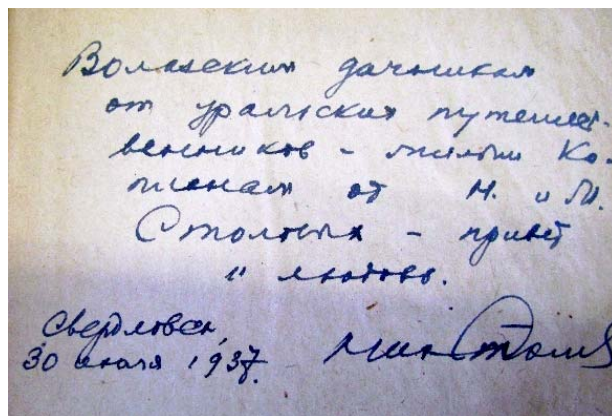 Волжским дачникам
от уральских путешест-
венников - милым Ко-
от Н. и М.
Столовых - привет
и любовь.
Свердловск,
30 июля 1937.